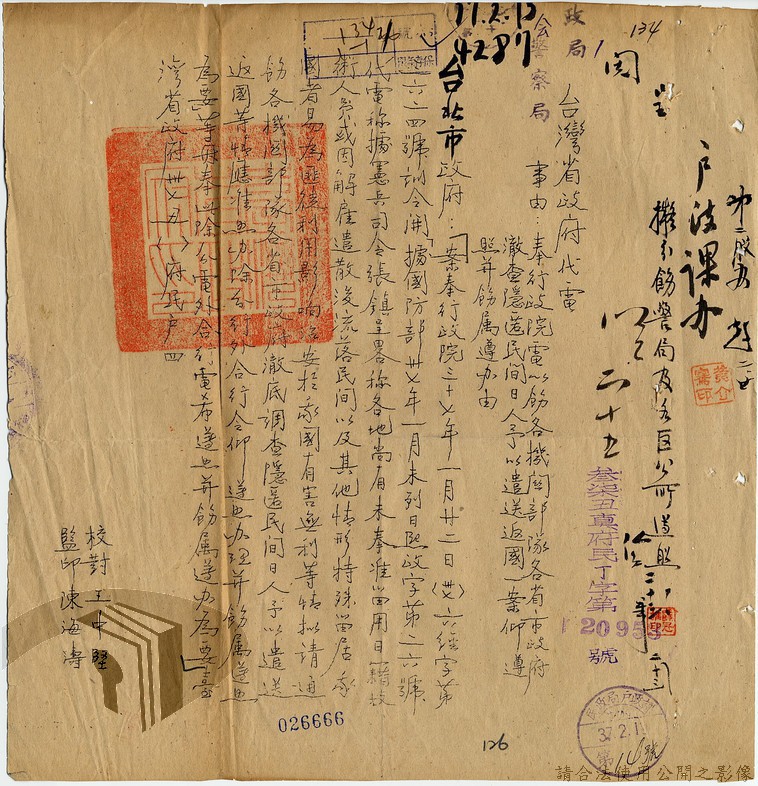 134
第二股办
戶政課办
擬分飭警局及各區公所遵照
二十五
叁柒丑真府民丁字第
20953
號
37.2.1
第 號
台灣省政府代電
事由：奉行政院電以飭各機關部隊各省市政府
澈查隱匿民間日人予以遣送返國一案仰遵
照并飭属遵办由
台北市政府：「案奉行政院三十七年一月廿二日（卅七）六經字第
二六二四號訓令開「據國防部卅七年一月未列日熙政字第二六號
代電称據憲兵司令張鎮呈畧称各地尚有未奉准留用日籍技
術人員或因解雇遣散後流落民間以及其他情形特殊留居我
國者易為匪徒利用影响治安於我國有害無利等情拟請通
飭各機関部隊各省市政府澈底調查隱匿民間日人予以遣送
返國等情應准照办除分行外合行令仰遵照办理并飭属遵照
為要等因奉此除分電外合行電希遵照并飭属遵办為要」臺
灣省政府卅七丑 府民户四
校對王中堅
監印陳海濤
警察局
4287
026666
126
請合法使用公開之影像